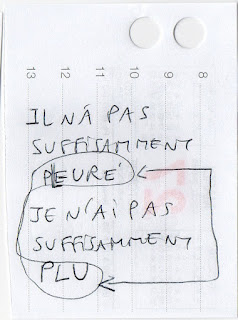 13 12 11 10 9 8
IL NÁ PAS
SUFFISAMMENT
PLEURÉ
JE N'Ai PAS
SUFFISAMMENT
PLU